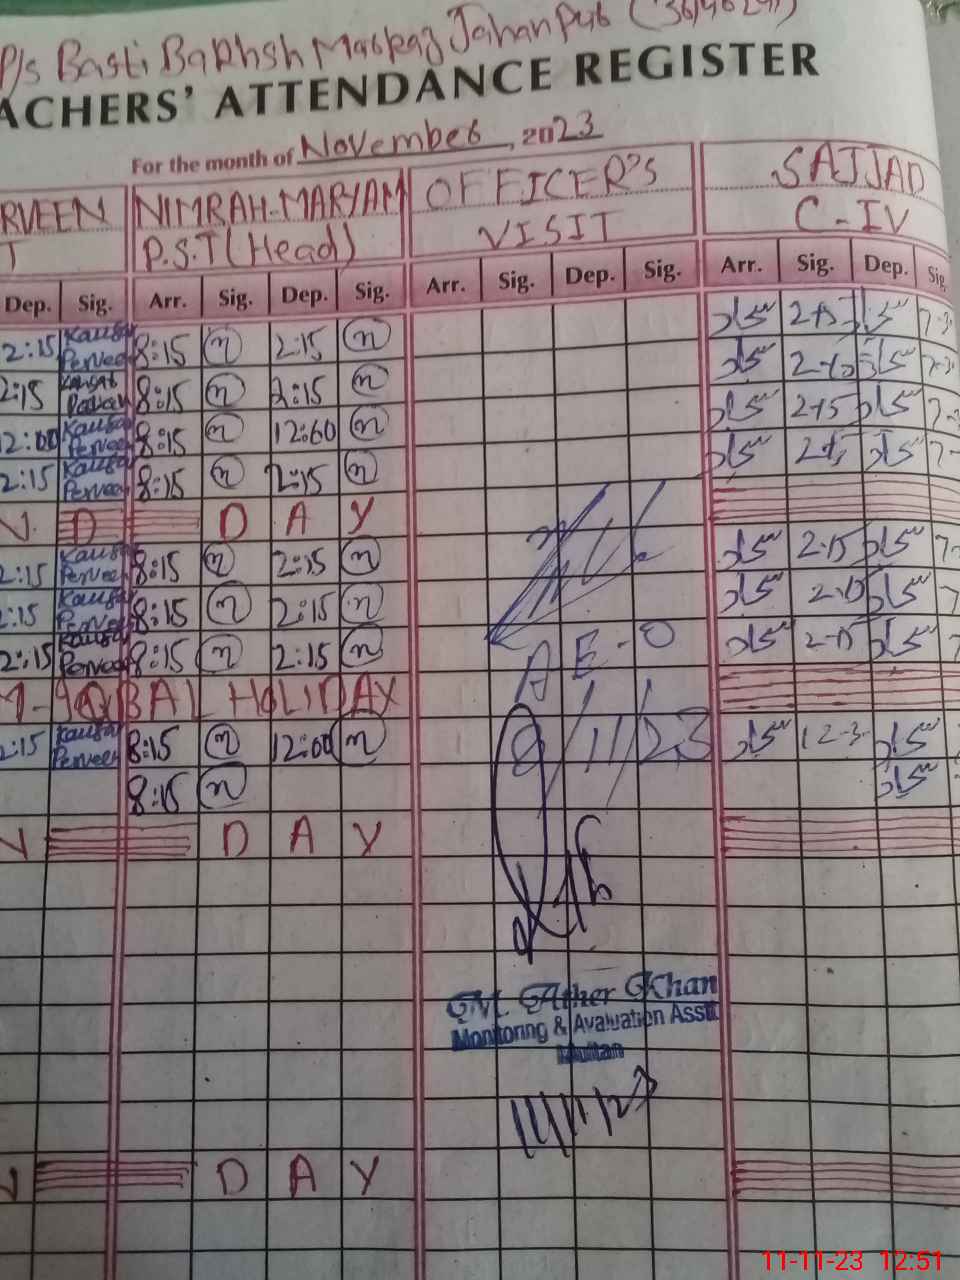 P/s Basti Bakhsh Jahanpur
ACHERS' ATTENDANCE REGISTER
For the month of November, 2023
RVEEN NIMRAH-MARYAM OFFICER'S SAJJAD
T P.S.T (Head) VISIT C-IV
Dep. Sig. Arr. Sig. Dep. Sig. Arr. Sig. Dep. Sig. Arr. Sig. Dep. Sig.
2:15 Kausar Perveen 8:15 n 2:15 n 2-15
2:15 Kausar Perveen 8:15 n 2:15 n 2-15
12:00 Kausar Perveen 8:15 n 12:60 n 2-15
2:15 Kausar Perveen 8:15 n 2:15 n 2-15
N. D D A Y
2:15 Kausar Perveen 8:15 n 2:15 n 2-15
2:15 Kausar Perveen 8:15 n 2:15 n 2-15
2:15 Kausar Perveen 8:15 n 2:15 n 2-15
A E-O
M-IQBAL HOLIDAY
2:15 Kausar Perveen 8:15 n 12:00 n 9/11/23 12-3
8:15 n
N D A Y
M. Ather Khan
Monitoring & Avaluation Asstt.
Multan
11/11/23
N D A Y
11-11-23 12:51